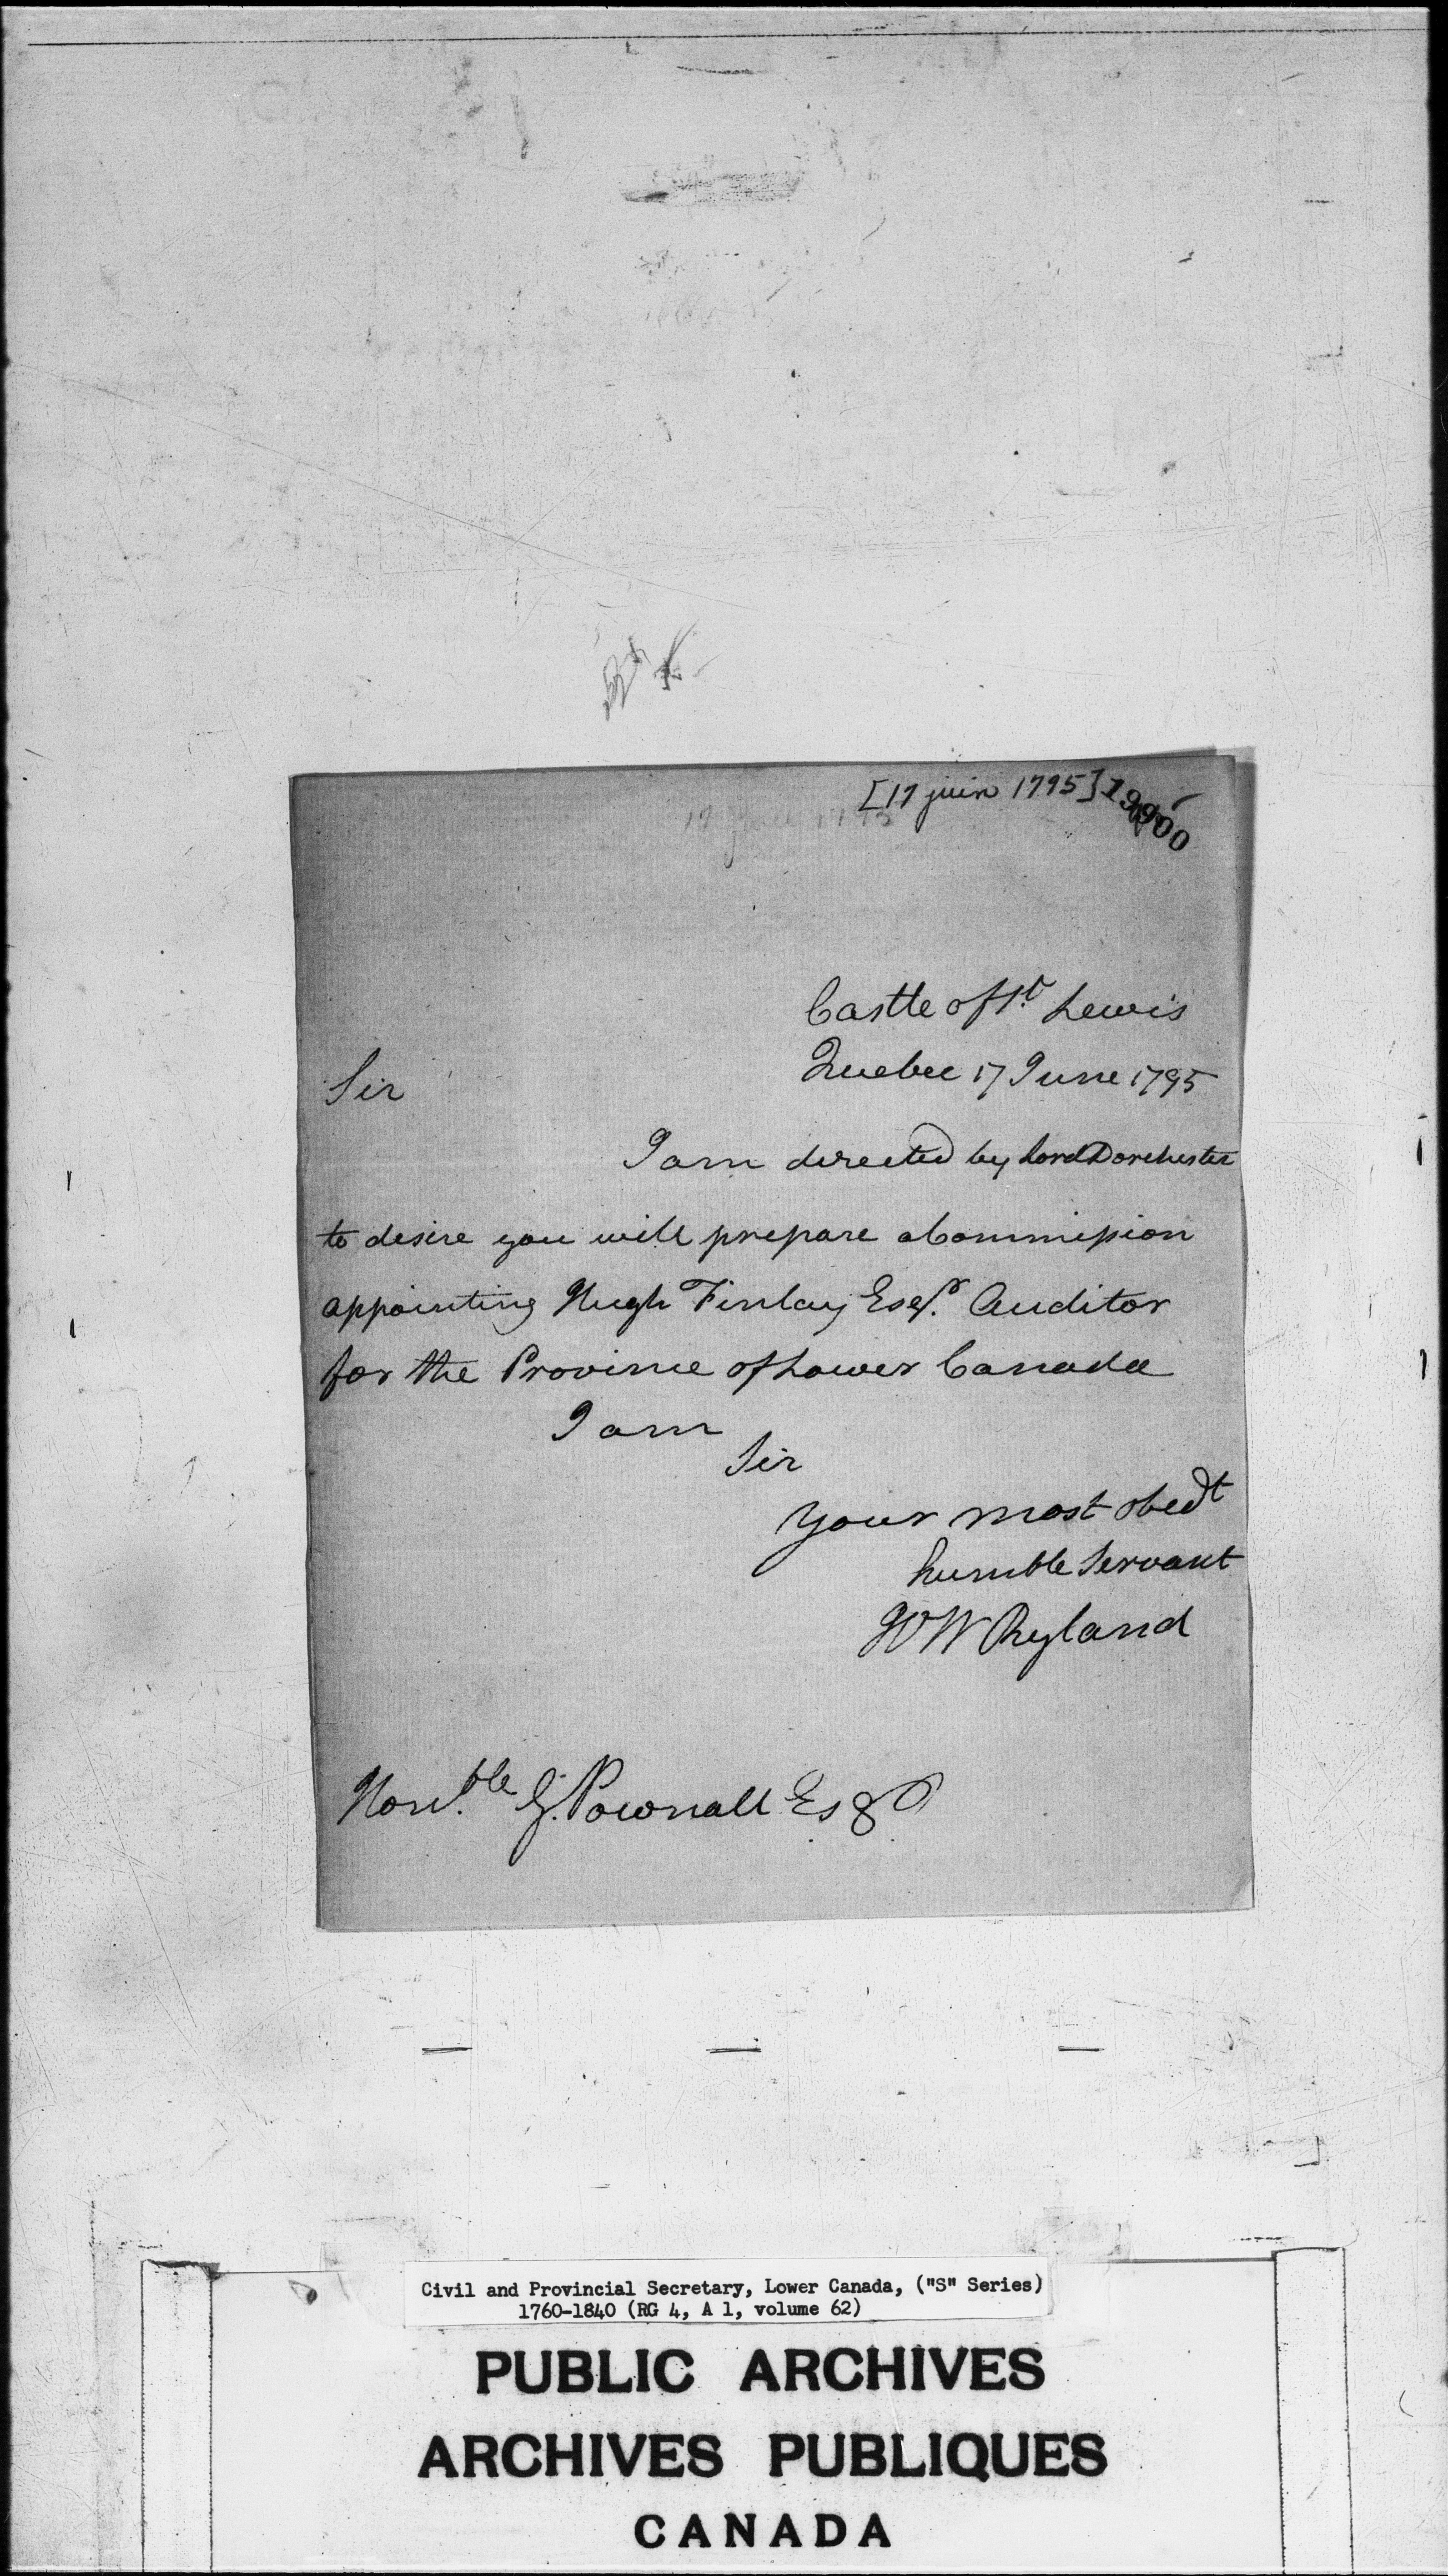 [17 juin 1795] 19900
Castle of St. Lewis
Quebec 17 June 1795
Sir
I am directed by Lord Dorchester
to desire you will prepare a Commission
appointing Hugh Finlay Esqr. Auditor
for the Province of Lower Canada
I am
Sir
Your most obedt
humble Servant
HW Ryland
Honble. G. Pownall Esqr
Civil and Provincial Secretary, Lower Canada, ("S" Series)
1760-1840 (RG 4, A 1, volume 62)
PUBLIC ARCHIVES
ARCHIVES PUBLIQUES
CANADA